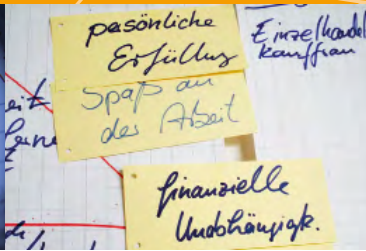 pasönliche
Erfüllung
Einzelhandel
kauffrau
Spaß an
der Arbeit
finanzielle
Unabhängigk.